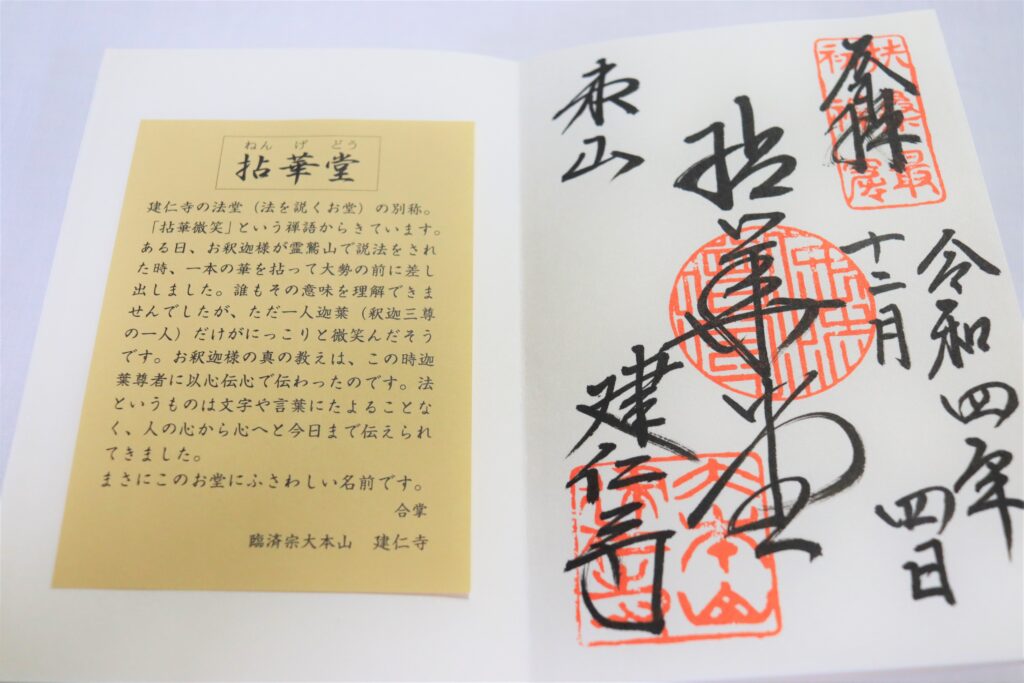 ねんげどう
拈華堂
建仁寺の法堂（法を説くお堂）の別称。
「拈華微笑」という禅語からきています。
ある日、お釈迦様が霊鷲山で説法をされ
た時、一本の華を拈って大勢の前に差し
出しました。誰もその意味を理解できま
せんでしたが、ただ一人迦葉（釈迦三尊
の一人）だけがにっこりと微笑んだそう
です。お釈迦様の真の教えは、この時迦
葉尊者に以心伝心で伝わったのです。法
というものは文字や言葉にたよることな
く、人の心から心へと今日まで伝えられ
てきました。
まさにこのお堂にふさわしい名前です。
合掌
臨済宗大本山　建仁寺
奉拝
扶桑最
初禅窟
令和四年
十二月
四日
拈華堂
東山
建仁寺